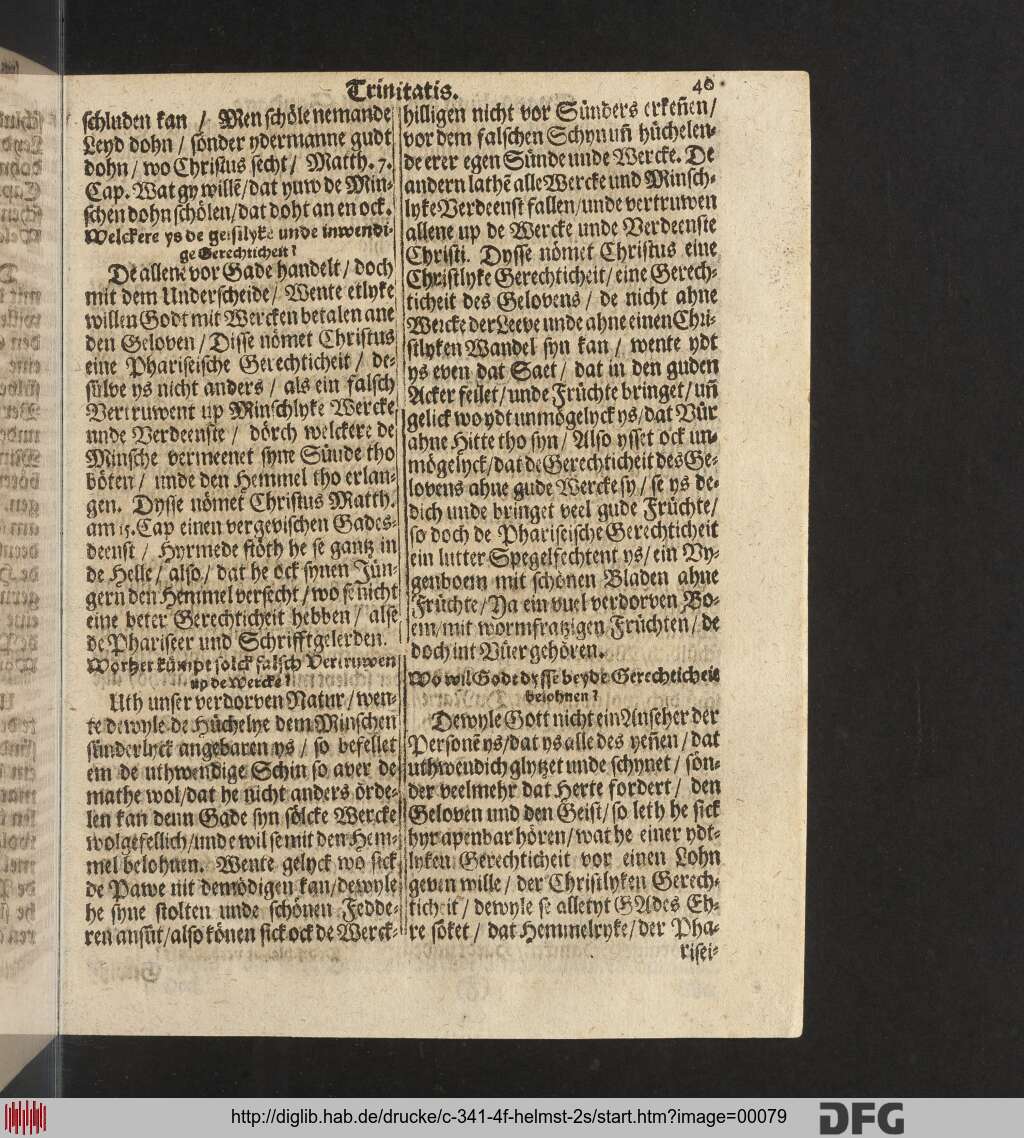 Trinitatis.
40
schluden kan / Men schöle nemande
Leyd dohn / sönder ydermanne gudt
dohn / wo Christus secht / Matth. 7.
Cap. Wat gy willẽ / dat yuw de Min-
schen dohn schölen / dat doht an en ock.
Welckere ys de geistlyke unde inwendi-
ge Gerechticheit?
De allene vor Gade handelt / doch
mit dem Underscheide / Wente etlyke
willen Godt mit Wercken betalen ane
den Geloven / Disse nömet Christus
eine Phariseische Gerechticheit / de-
sülve ys nicht anders / als ein falsch
Vertruwent up Minschlyke Wercke
unde Verdeenste / dörch welckere de
Minsche vermeenet syne Sünde tho
böten / unde den Hemmel tho erlan-
gen. Dysse nömet Christus Matth.
am 15. Cap einen vergevischen Gades-
deenst / Hyrmede stöth he se gantz in
de Helle / also / dat he ock synen Jün-
gern den Hemmel versecht / wo se nicht
eine beter Gerechticheit hebben / alse
de Phariseer und Schrifftgelerden.
Worher kümpt solck falsch Vertruwen
up de Wercke?
Uth unser verdorven Natur / wen-
te dewyle de Hüchelye dem Minschen
sünderlyck angebaren ys / so befellet
em de uthwendige Schin so aver de
mathe wol / dat he nicht anders örde-
len kan denn Gade syn sölcke Wercke
wolgefellich / unde wil se mit den Hem-
mel belohnen. Wente gelyck wo sick
de Pawe nit demödigen kan / dewyle
he syne stolten unde schönen Fedde-
ren ansüt / also könen sick ock de Werck-
hilligen nicht vor Sünders erkeñen /
vor dem falschen Schyn uñ hüchelen-
de erer egen Sünde unde Wercke. De
andern lathẽ alle Wercke und Minsch-
lyke Verdeenst fallen / unde vertruwen
allene up de Wercke unde Verdeenste
Christi. Dysse nömet Christus eine
Christlyke Gerechticheit / eine Gerech-
ticheit des Gelovens / de nicht ahne
Wercke der Leeve unde ahne einen Chri-
stlyken Wandel syn kan / wente ydt
ys even dat Saet / dat in den guden
Acker feilet / unde Früchte bringet / uñ
gelick wo ydt unmögelyck ys / dat Vür
ahne Hitte tho syn / Also ysset ock un-
mögelyck / dat de Gerechticheit des Ge-
lovens ahne gude Wercke sy / se ys de-
dich unde bringet veel gude Früchte /
so doch de Phariseische Gerechticheit
ein lutter Spegelfechtent ys / ein Vy-
genboem mit schönen Bladen ahne
Früchte / Ya ein vuel verdorven Bo-
em / mit wormfratzigen Früchten / de
doch int Vüer gehören.
Wo wil Godt dysse beyde Gerechticheit
belohnen?
Dewyle Gott nicht ein Anseher der
Personẽ ys / dat ys alle des yeñen / dat
uthwendich glytzet unde schynet / sön-
der veelmehr dat Herte fordert / den
Geloven und den Geist / so leth he sick
hyr apenbar hören / wat he einer ydt-
lyken Gerechticheit vor einen Lohn
geven wille / der Christlyken Gerech-
ticheit / dewyle se alletyt GAdes Eh-
re söket / dat Hemmelryke / der Pha-
risei-
http://diglib.hab.de/drucke/c-341-4f-helmst-2s/start.htm?image=00079
DFG